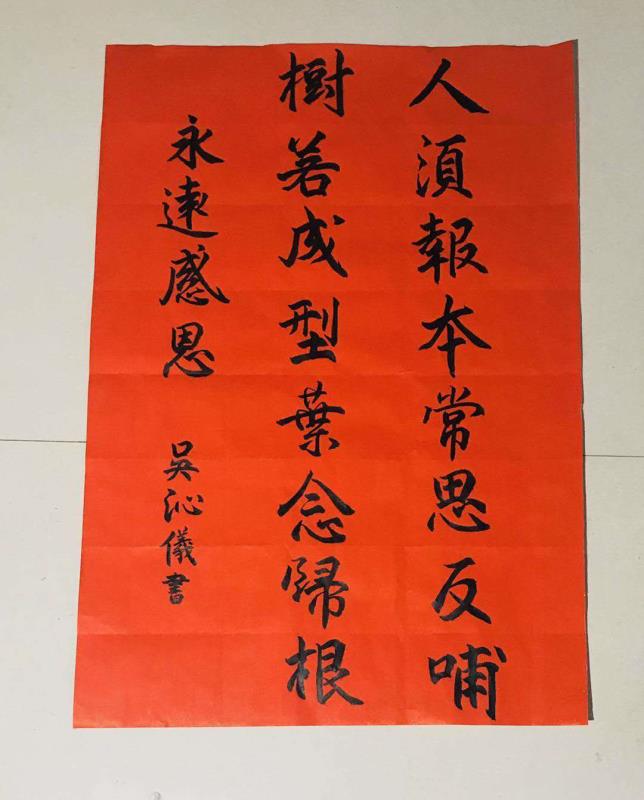 人須報本常思反哺
樹若成型葉念歸根
永遠感恩 吳沁儀書